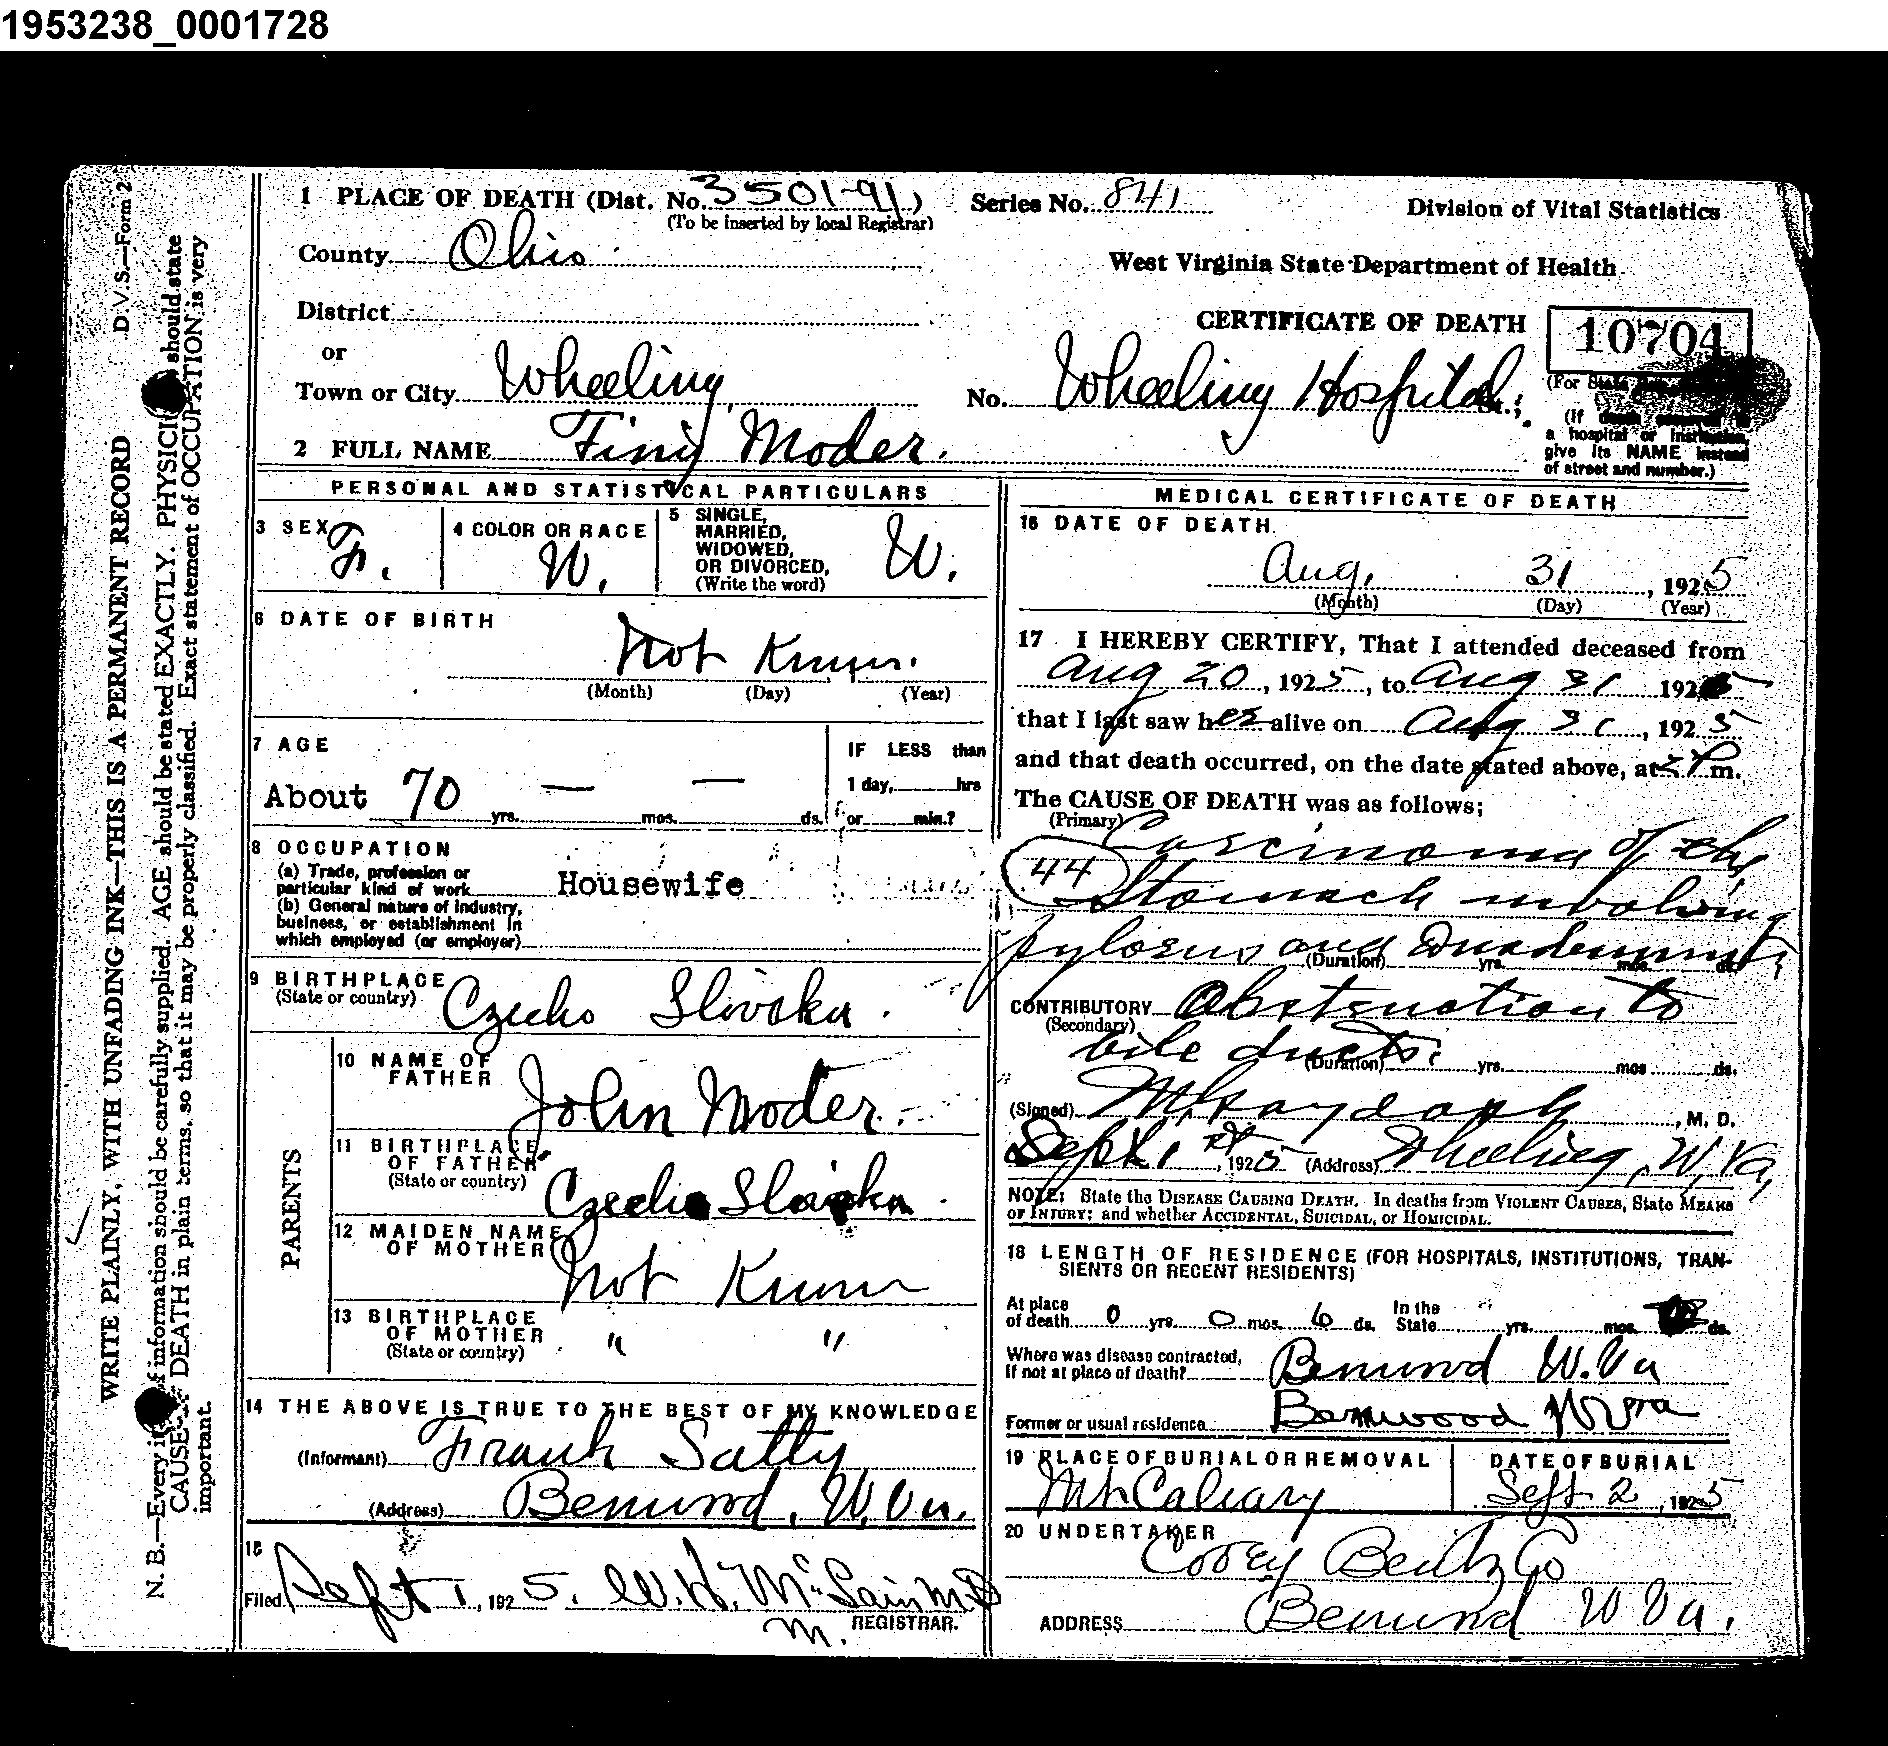 1953238_0001728
D.V.S.—Form 2
WRITE PLAINLY, WITH UNFADING INK—THIS IS A PERMANENT RECORD
N. B.—Every information should be carefully supplied. AGE should be stated EXACTLY. PHYSICI should state
CAUSE DEATH in plain terms, so that it may be properly classified. Exact statement of OCCUPATION is very
important.
1 PLACE OF DEATH (Dist. No. 3501-91) Series No. 841 Division of Vital Statistics
(To be inserted by local Registrar)
County Ohio West Virginia State Department of Health
District CERTIFICATE OF DEATH 10704
or
Town or City Wheeling No. Wheeling Hospital (For State
(If
a hospital or Institution,
give its NAME instead
of street and number.)
2 FULL NAME Tiny Moder.
PERSONAL AND STATISTICAL PARTICULARS
3 SEX F.
4 COLOR OR RACE W.
5 SINGLE,
MARRIED,
WIDOWED,
OR DIVORCED,
(Write the word) W.
6 DATE OF BIRTH
Not Known.
(Month) (Day) (Year)
7 AGE
About 70 yrs. — mos. — ds.
IF LESS than
1 day, hrs
or min.?
8 OCCUPATION
(a) Trade, profession or
particular kind of work Housewife
(b) General nature of Industry,
business, or establishment in
which employed (or employer)
9 BIRTHPLACE
(State or country) Czecho Slovoku.
PARENTS
10 NAME OF
FATHER John Moder.
11 BIRTHPLACE
OF FATHER
(State or country) Czecho Slovoku.
12 MAIDEN NAME
OF MOTHER Not Known
13 BIRTHPLACE
OF MOTHER " "
(State or country)
14 THE ABOVE IS TRUE TO THE BEST OF MY KNOWLEDGE
(Informant) Frank Satty
(Address) Benwood, W. Va.
15
Filed Sept 1, 1925. W. H. McLain M D
M. REGISTRAR.
MEDICAL CERTIFICATE OF DEATH
16 DATE OF DEATH
Aug. 31, 1925
(Month) (Day) (Year)
17 I HEREBY CERTIFY, That I attended deceased from
Aug 20, 1925, to Aug 31 1925
that I last saw her alive on Aug 31, 1925
and that death occurred, on the date stated above, at P m.
The CAUSE OF DEATH was as follows;
(Primary) Carcinoma of the
44 Stomach involving
pylorus and Duodenum
(Duration) yrs. mos. ds.
CONTRIBUTORY Obstruction to
(Secondary)
bile ducts.
(Duration) yrs. mos. ds.
(Signed) , M. D.
Sept. 1st, 1925 (Address) Wheeling, W. Va.
NOTE: State the DISEASE CAUSING DEATH. In deaths from VIOLENT CAUSES, State MEANS
OF INJURY; and whether ACCIDENTAL, SUICIDAL, or HOMICIDAL.
18 LENGTH OF RESIDENCE (FOR HOSPITALS, INSTITUTIONS, TRAN-
SIENTS OR RECENT RESIDENTS)
At place
of death 0 yrs. 0 mos. 6 ds. In the
State yrs. mos. ds.
Where was disease contracted,
if not at place of death? Benwood W. Va
Former or usual residence Benwood W Va
19 PLACE OF BURIAL OR REMOVAL
Mt Calvary
DATE OF BURIAL
Sept 2, 1925
20 UNDERTAKER
Cooey Bentz Co
ADDRESS Benwood W Va.